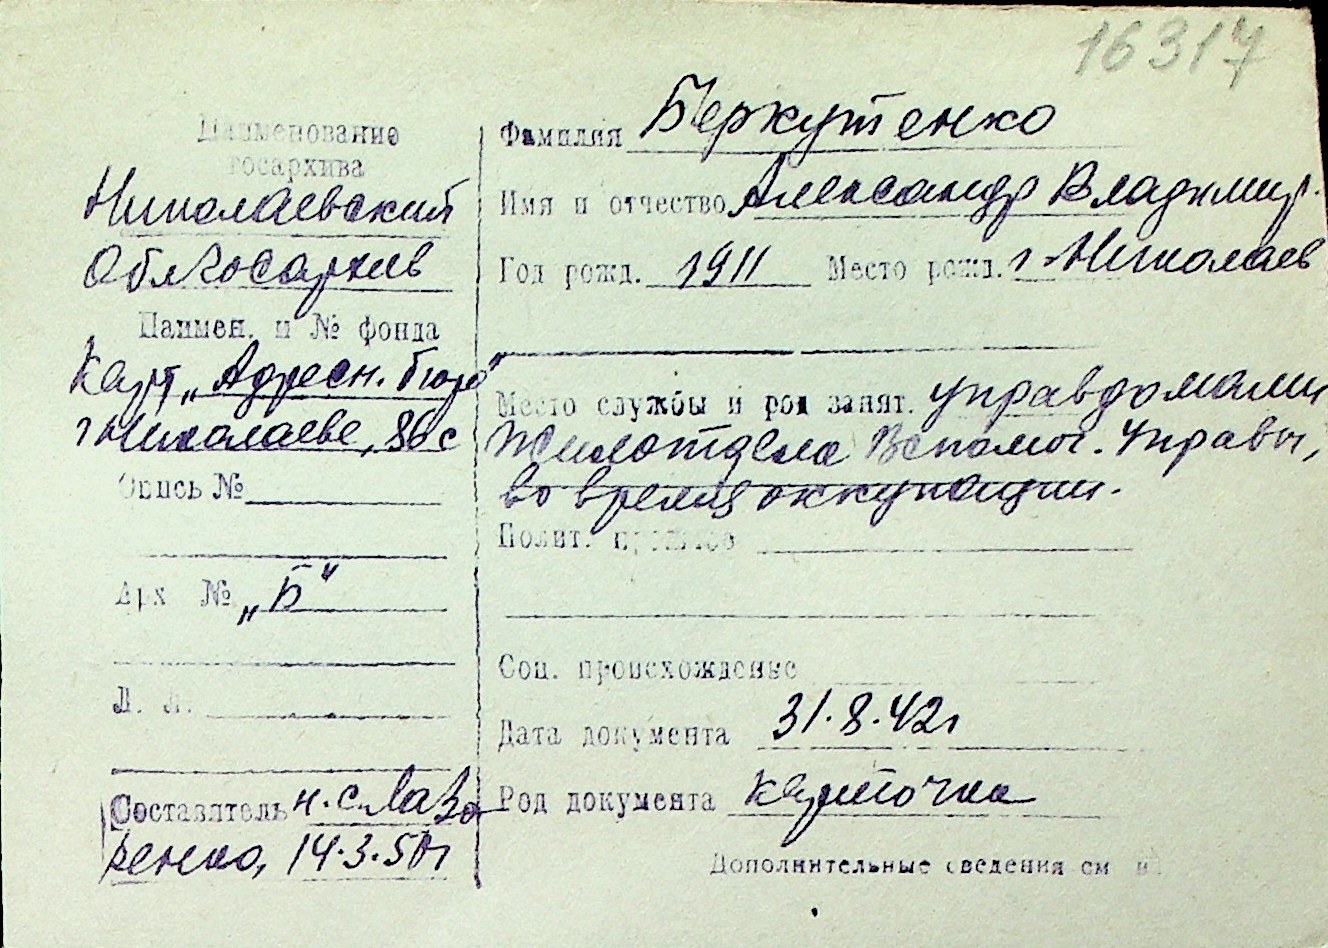 16317
Наименование
госархива
Николаевский
Облгосархив
Наимен. и № фонда
Карт. „Адресн. бюро"
г. Николаеве, 86 с
Опись №
Арх №
„Б"
Л. Л.
Составитель н. с. Лаза
ренко, 14.3.50 г
Фамилия Беркутенко
Имя и отчество Александр Владимир.
Год рожд. 1911 Место рожд. г. Николаев
Место службы и род занят. управдомами
Жилотдела Вспомог. Управы,
во время оккупации.
Полит.
Соц. происхождение
Дата документа 31.8.42 г
Род документа карточка
Дополнительные сведения см